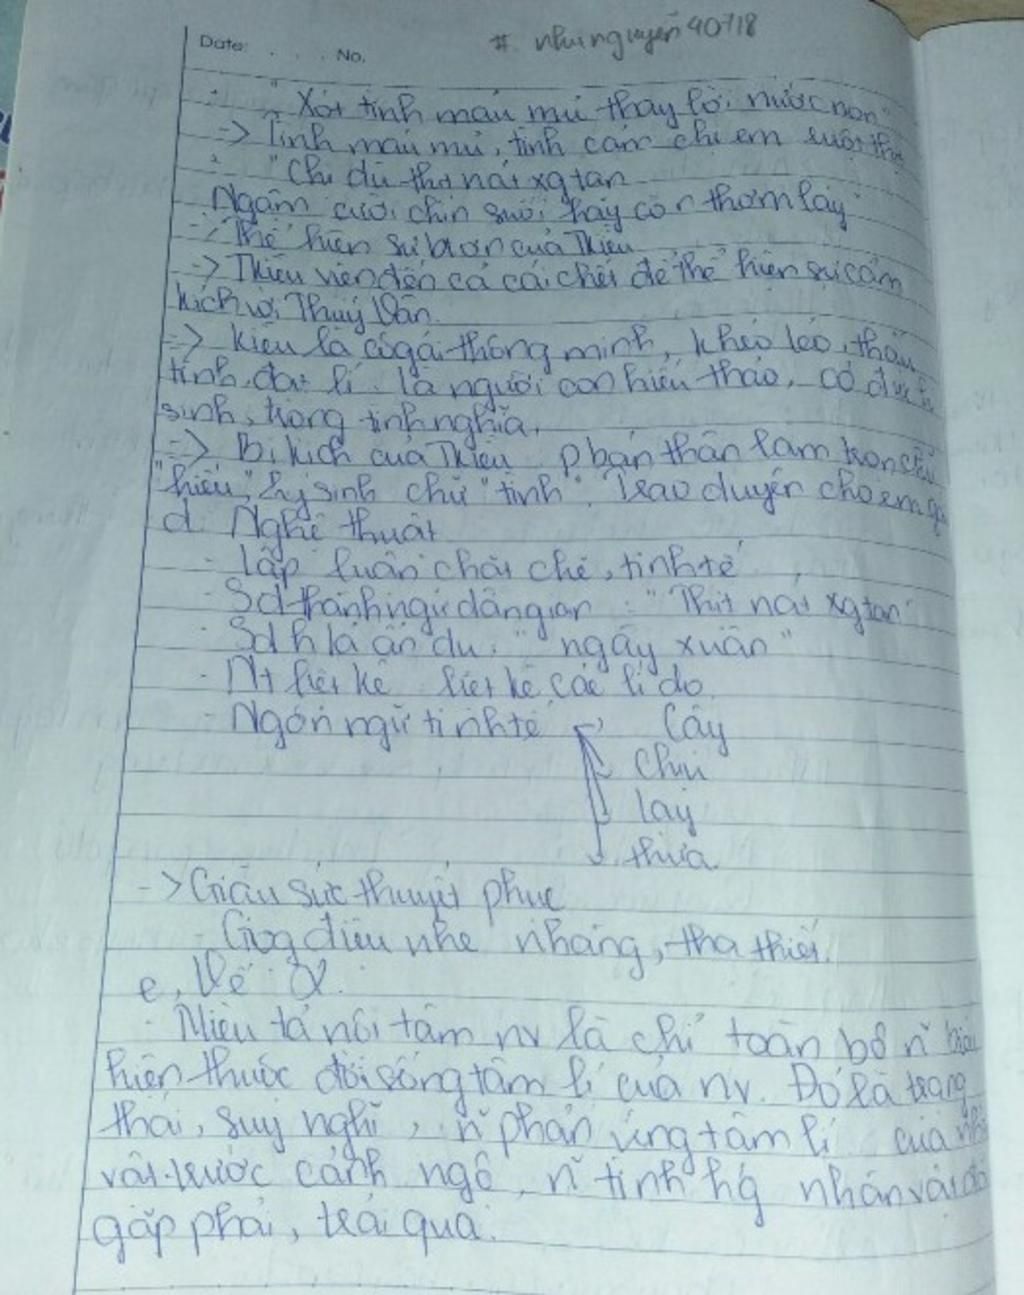 Date: . . . . No.
# nhinguyen40718
- "Xót tình máu mủ thay lời nước non"
-> Tình máu mủ, tình cảm chị em ruột
- "Chị dù thịt nát xg tan
Ngậm cười chín suối hãy còn thơm lây"
Thể hiện sự
-> Thuý viện đến cả cái chết để thể hiện sự cảm
kích với Thuý Vân.
=> Kiều là cô gái thông minh, khéo léo, thấu
tình, đạt lí. Là người con hiếu thảo, có đức hi
sinh, trọng tình nghĩa.
=> Bi kịch của phận thân làm tròn chữ
"hiếu", hy sinh chữ "tình". Trao duyên cho em gái
d. Nghệ thuật
- Lập luận chặt chẽ, tinh tế
- Sd thành ngữ dân gian: "Thịt nát xg tan"
- Sd h/a ẩn dụ: "ngày xuân"
- Nt liệt kê: liệt kê các lí do
- Ngôn ngữ tinh tế -> Cậy
-> chịu
-> lạy
-> thưa
-> Giàu sức thuyết phục
Giọng điệu nhẹ nhàng, tha thiết.
e, Vế
- Miêu tả nội tâm nv là chỉ toàn bộ n~ biểu
hiện thuộc đời sống tâm lí của nv. Đó là trạng
thái, suy nghĩ, n~ phản ứng tâm lí của nhân
vật trước cảnh ngộ, n~ tình hg nhân vật đã
gặp phải, trải qua.